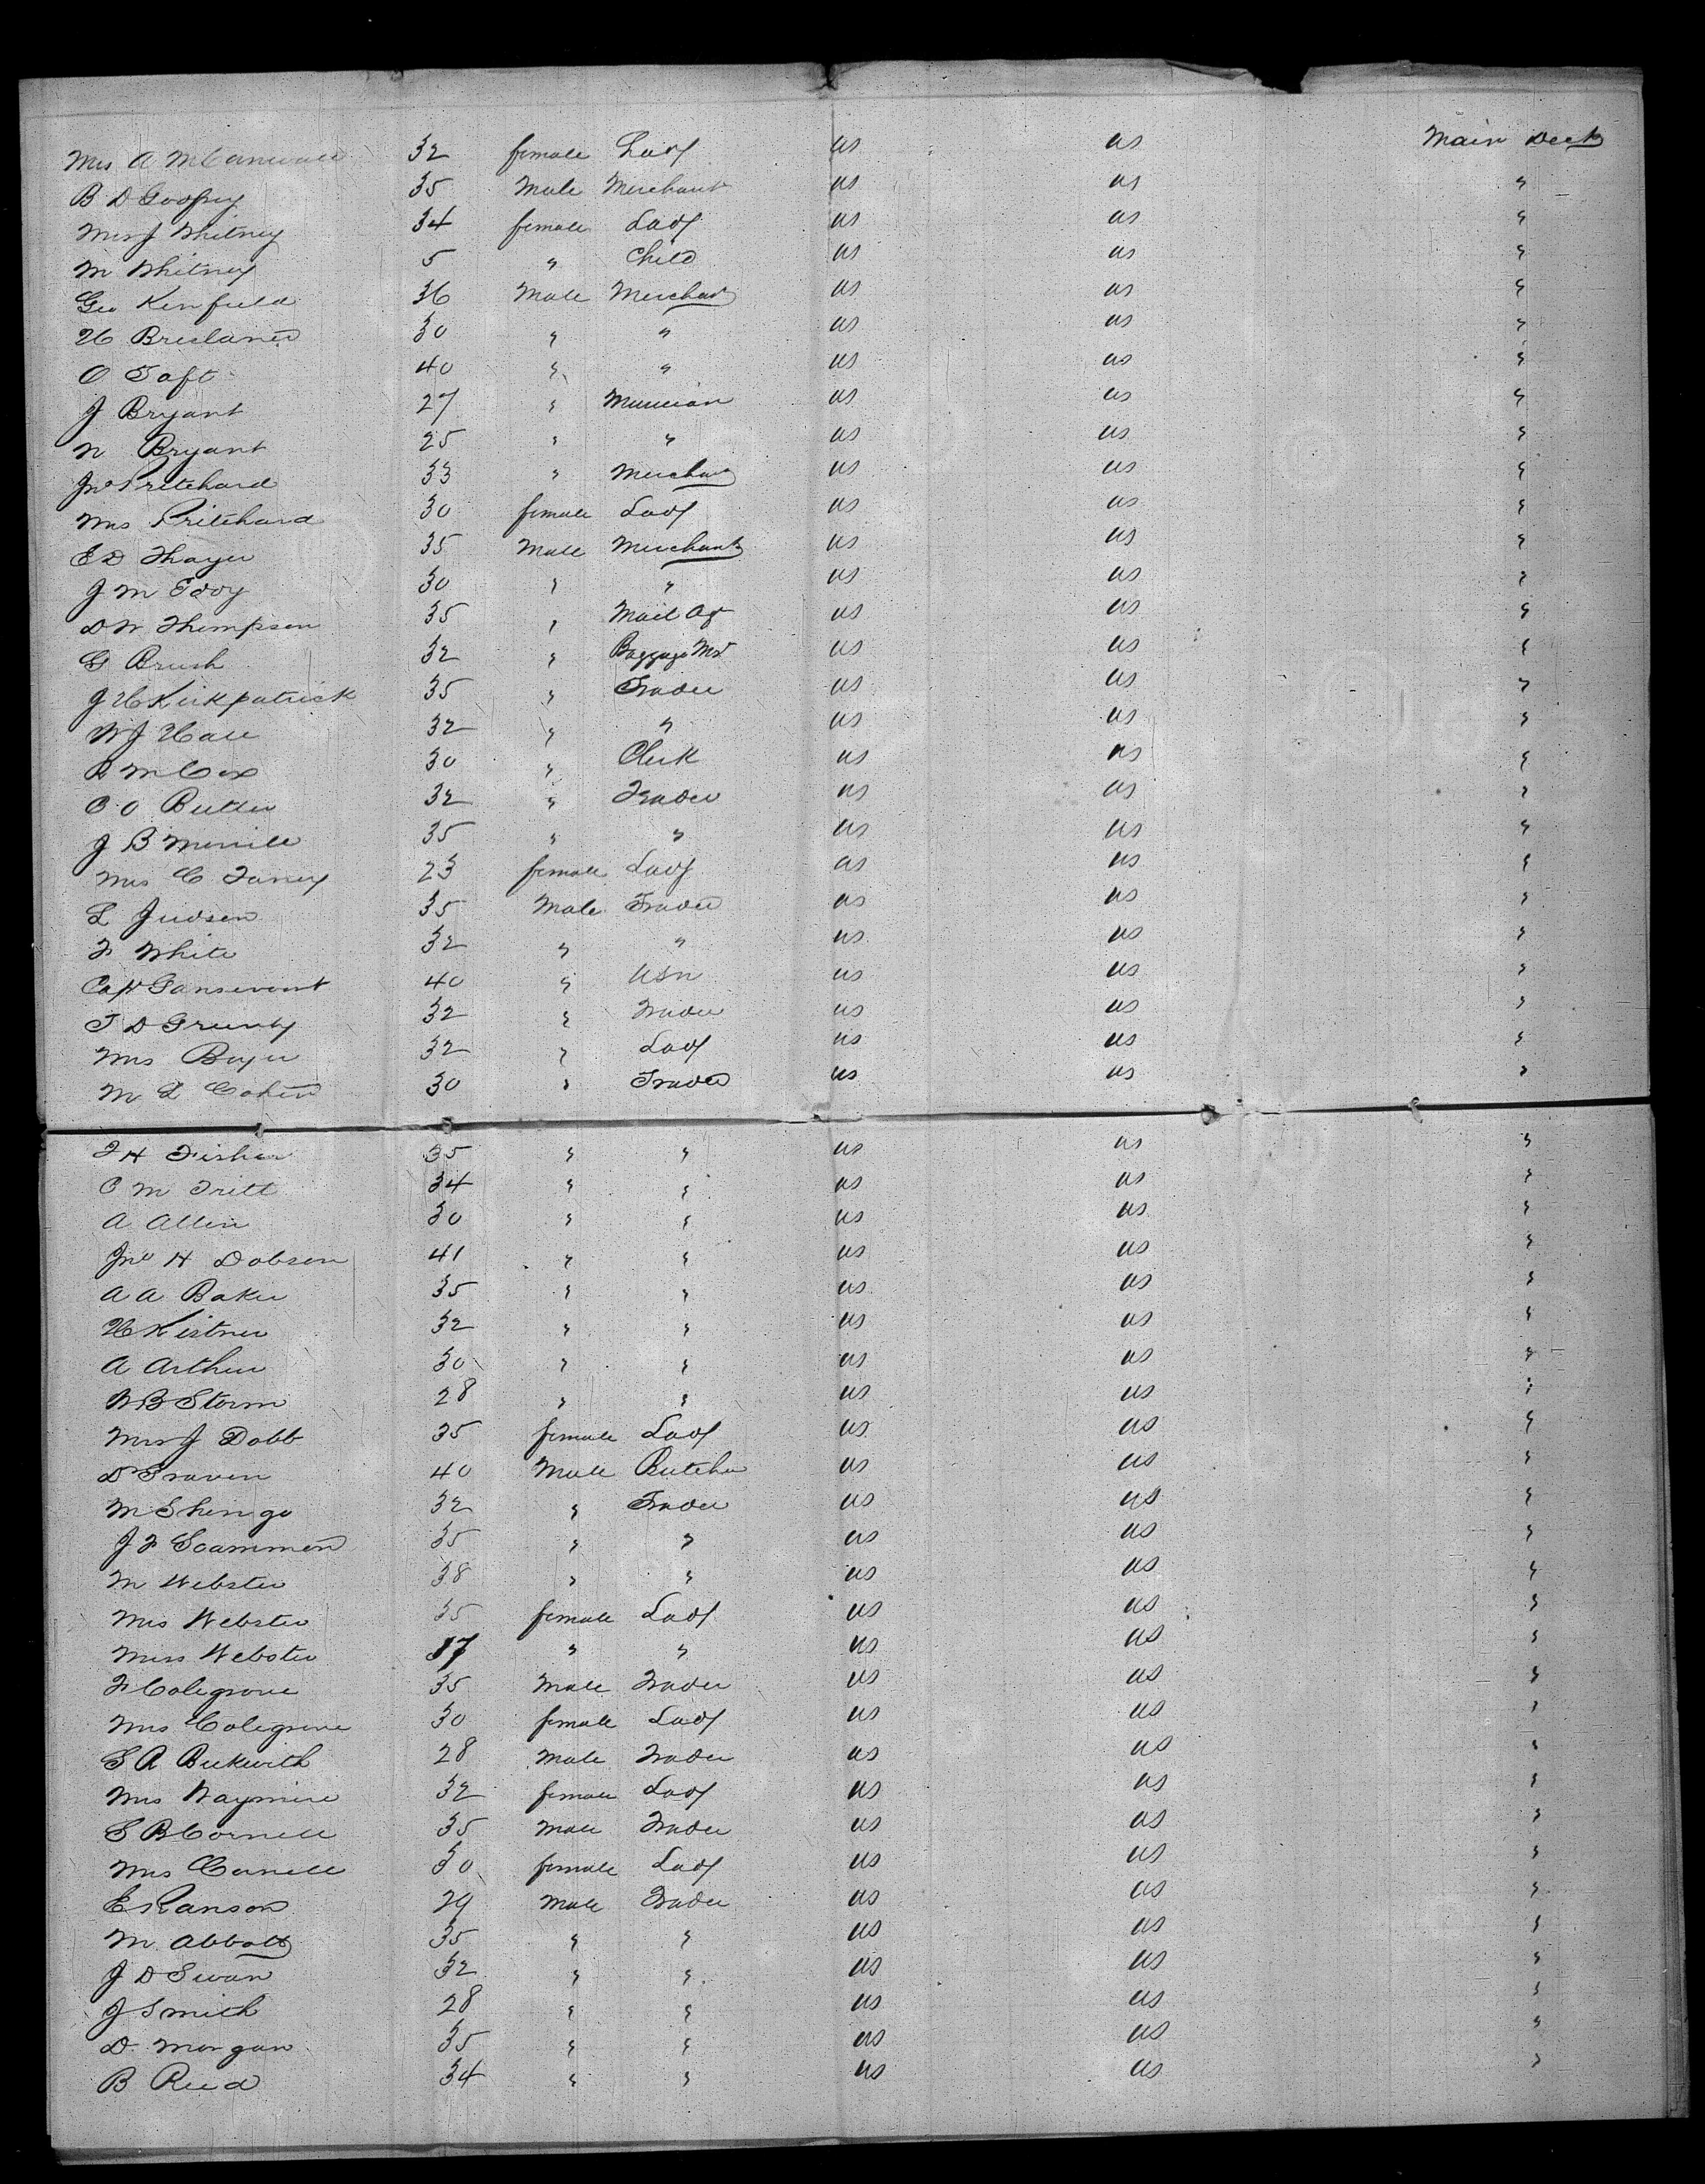 Mrs A 32 female Lady US US Main Deck
B D Godfrey 35 Male Merchant US US "
Mrs J Whitney 34 female Lady US US "
M Whitney 5 " Child US US "
Geo Kenfield 36 Male Merchant US US "
H Breslaner 30 " " US US "
O Taft 40 " " US US "
J Bryant 27 " Musician US US "
N Bryant 25 " " US US "
Jno Pritchard 33 " Merchant US US "
Mrs Pritchard 30 female Lady US US "
E D Thayer 35 Male Merchant US US "
J M Eddy 30 " " US US "
D W Thompson 35 " Mail Ag US US "
G Brush 32 " Baggage Mr US US "
J H Kirkpatrick 35 " Trader US US "
W J Hall 32 " " US US "
R M Cox 30 " Clerk US US "
C O Butler 32 " Trader US US "
J B Merrill 35 " " US US "
Mrs C Taney 23 female Lady US US "
L Judson 35 Male Trader US US "
F White 32 " " US US "
Capt Gansevoort 40 " USN US US "
T D Grunty 32 " Trader US US "
Mrs Boyer 32 " Lady US US "
M L Cohen 30 " Trader US US "
F H Fisher 35 " " US US "
C M Tritt 34 " " US US "
A Allen 30 " " US US "
Jno H Dobson 41 " " US US "
A A Baker 35 " " US US "
H Kistner 32 " " US US "
A Arthur 30 " " US US "
W B Storm 28 " " US US "
Mrs J Dobb 35 female Lady US US "
D Graven 40 Male Butcher US US "
M Shengo 32 " Trader US US "
J F Scammon 35 " " US US "
M Webster 38 " " US US "
Mrs Webster 35 female Lady US US "
Miss Webster 17 " " US US "
F Colegrove 35 Male Trader US US "
Mrs Colegrove 30 female Lady US US "
S A Beckwith 28 Male Trader US US "
Mrs Waymire 32 female Lady US US "
S B Cornell 35 Male Trader US US "
Mrs Cornell 30 female Lady US US "
E Ranson 29 Male Trader US US "
M Abbott 35 " " US US "
J D Swan 32 " " US US "
J Smith 28 " " US US "
D Morgan 35 " " US US "
B Reed 34 " " US US "